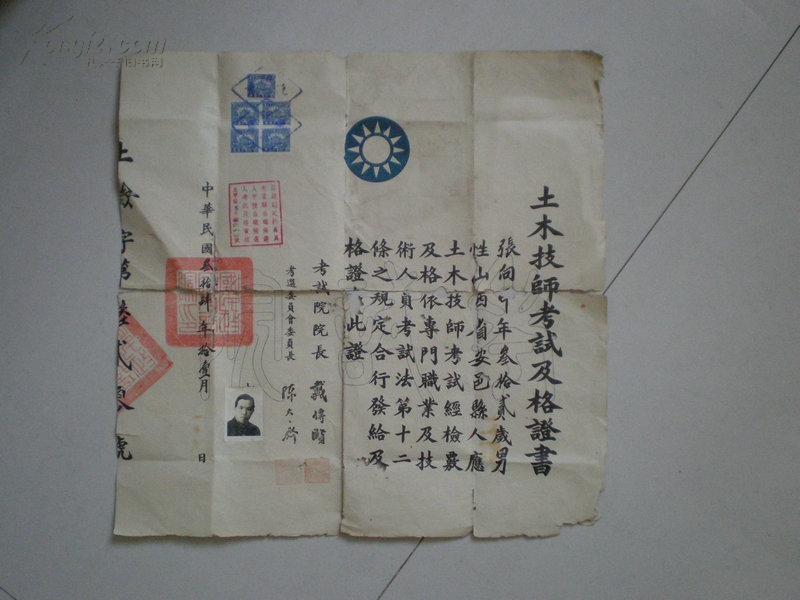 土木技師考試及格證書
張向 年叁拾貳歲男
性山西省安邑縣人應
土木技師考試經檢覈
及格依專門職業及技
術人員考試法第十二
條之規定合行發給及
格證 此證
考試院院長 戴傳賢
考選委員會委員長 陳大齊
中華民國叁拾肆年拾壹月 日
土檢字第 陸貳 號
kongfz.com